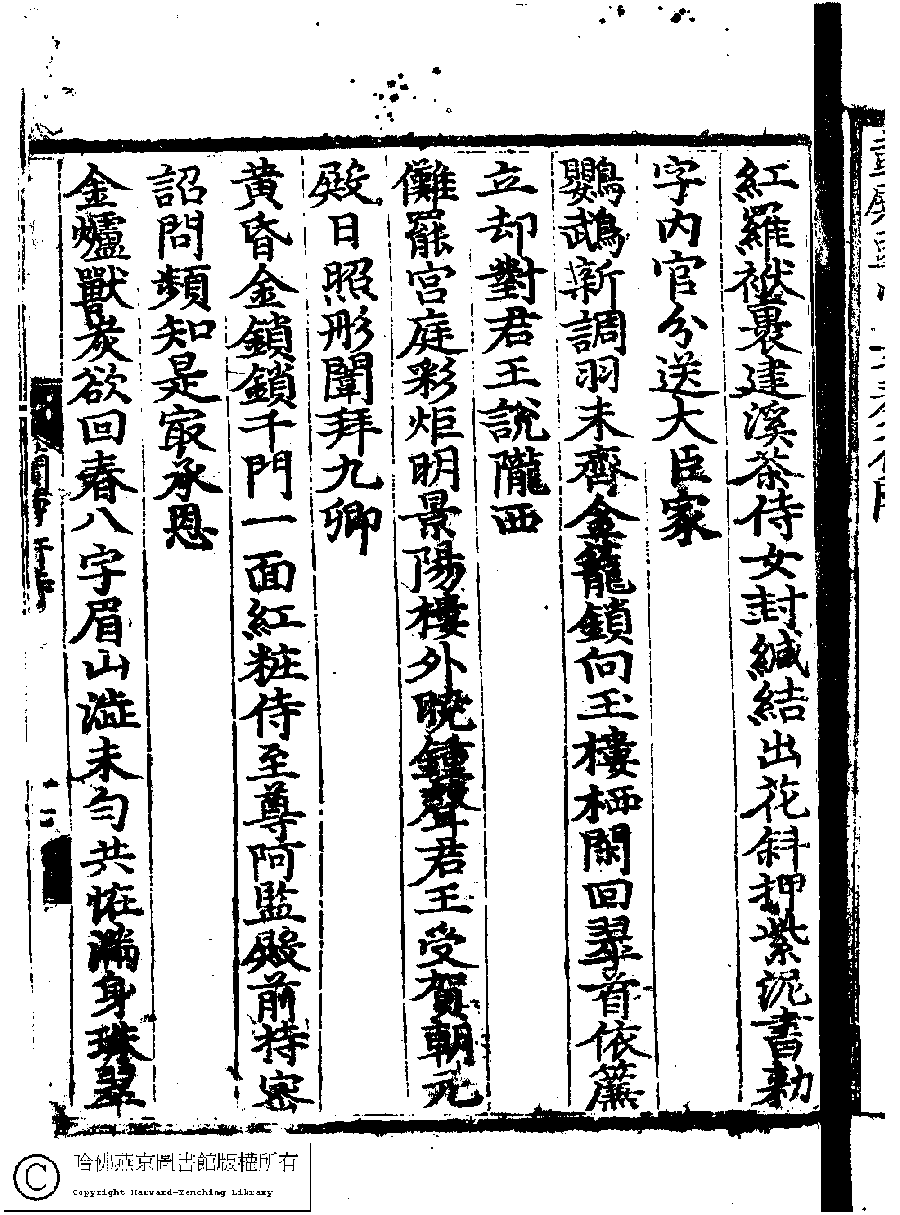 紅羅袱裹建溪茶侍女封緘結出花斜押紫泥書勅
字內官分送大臣家
鸚鵡新調羽未齊金籠鎖向玉樓栖閑回翠首依簾
立却對君王說隴西
儺罷宮庭彩炬明景陽樓外曉鍾聲君王受賀朝元
殿日照形闈拜九卿
黃昏金鎖鎖千門一面紅粧侍至尊阿監殿前持密
詔問頻知是㝡承恩
金爐獸炭欲回春八字眉山澁未勻共恠滿身珠翠
哈佛燕京圖書館版權所有
Copyright Harvard-Yenching Library